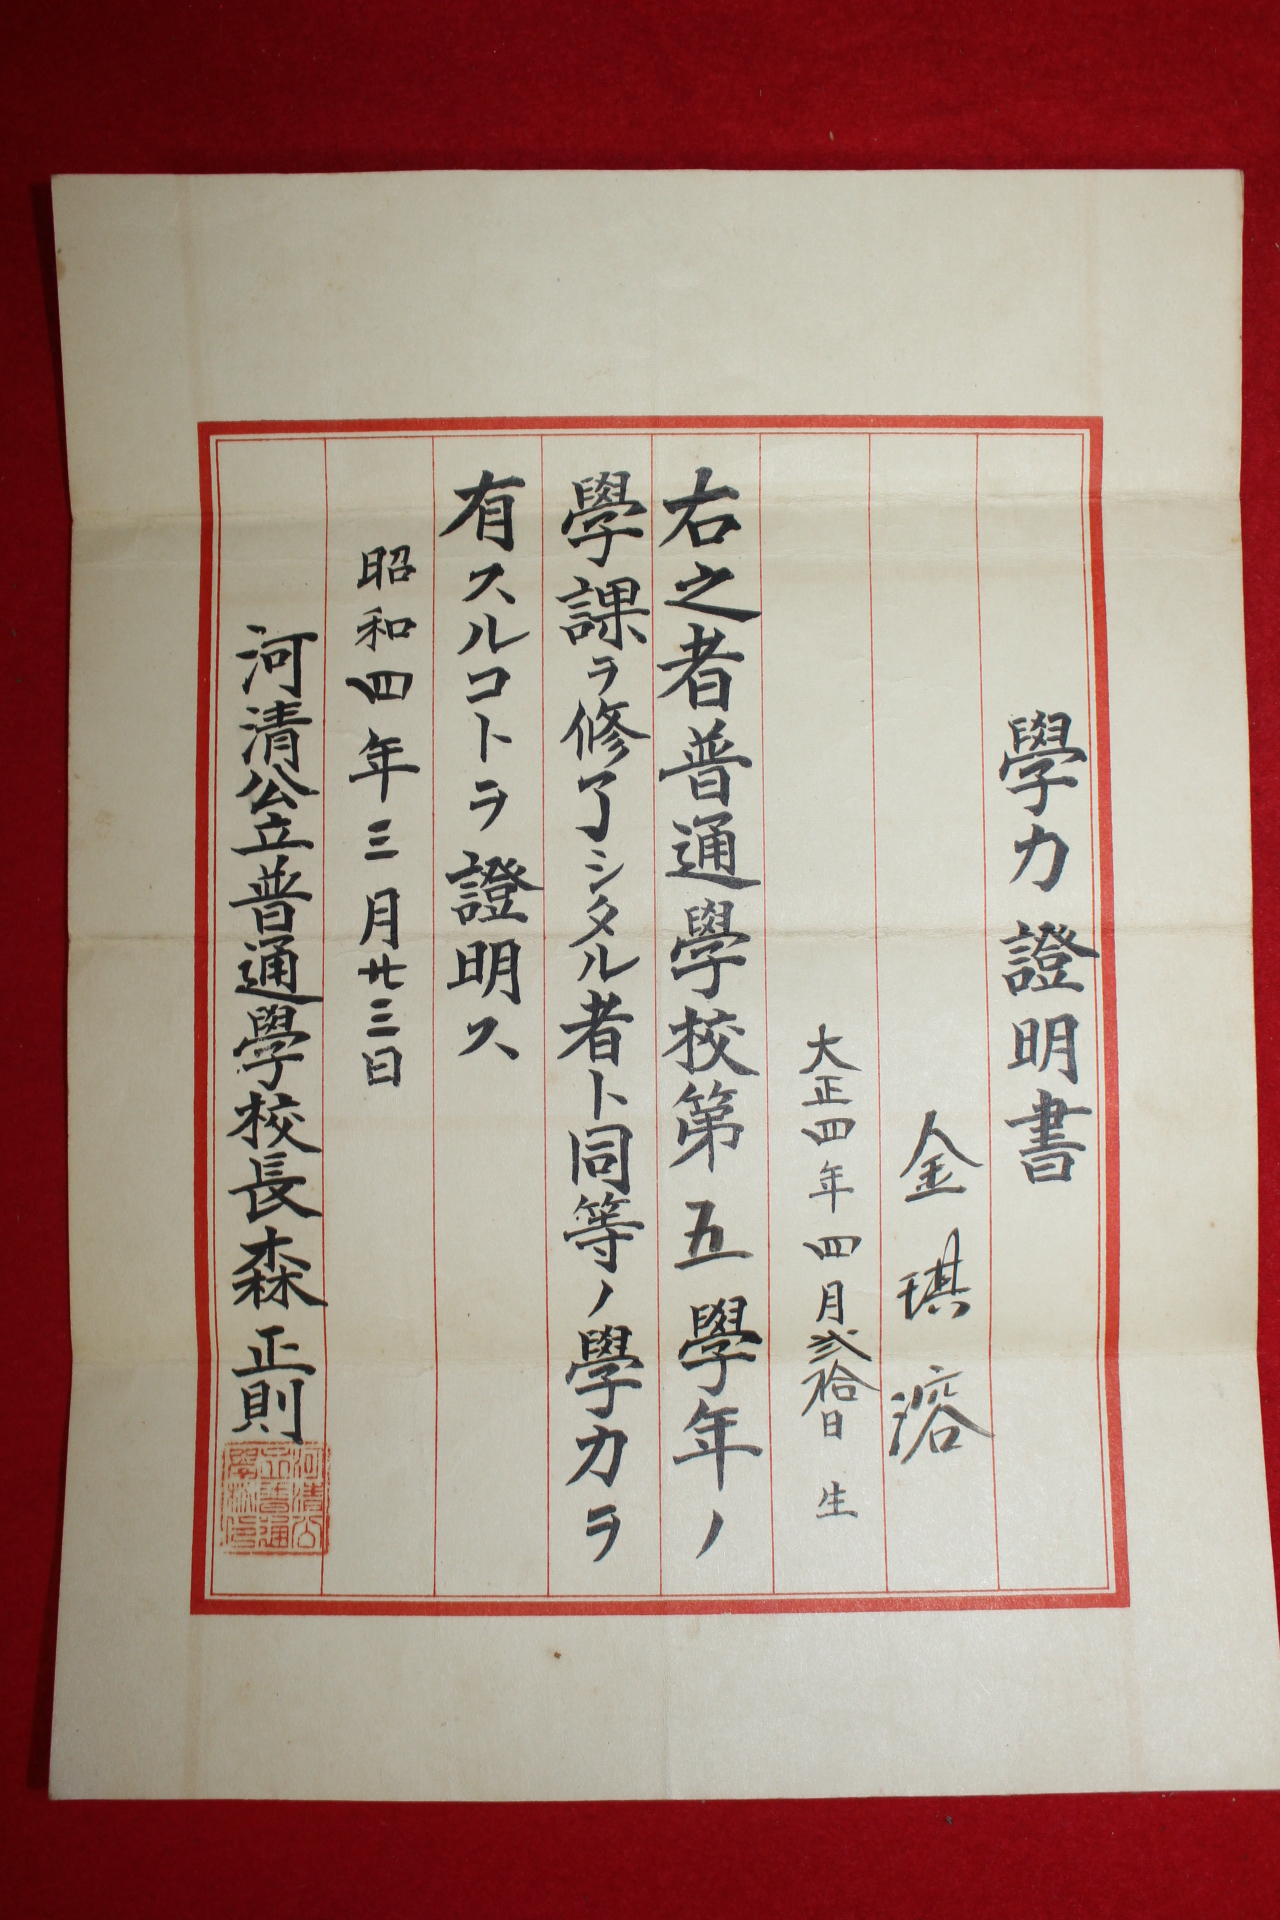 學力證明書
金琪溶
大正四年四月貳拾日生
右之者普通學校第五學年ノ
學課ヲ修了シタル者ト同等ノ學力ヲ
有スルコトヲ證明ス
昭和四年三月廿三日
河清公立普通學校長森正則
河清公
立普通
學校印